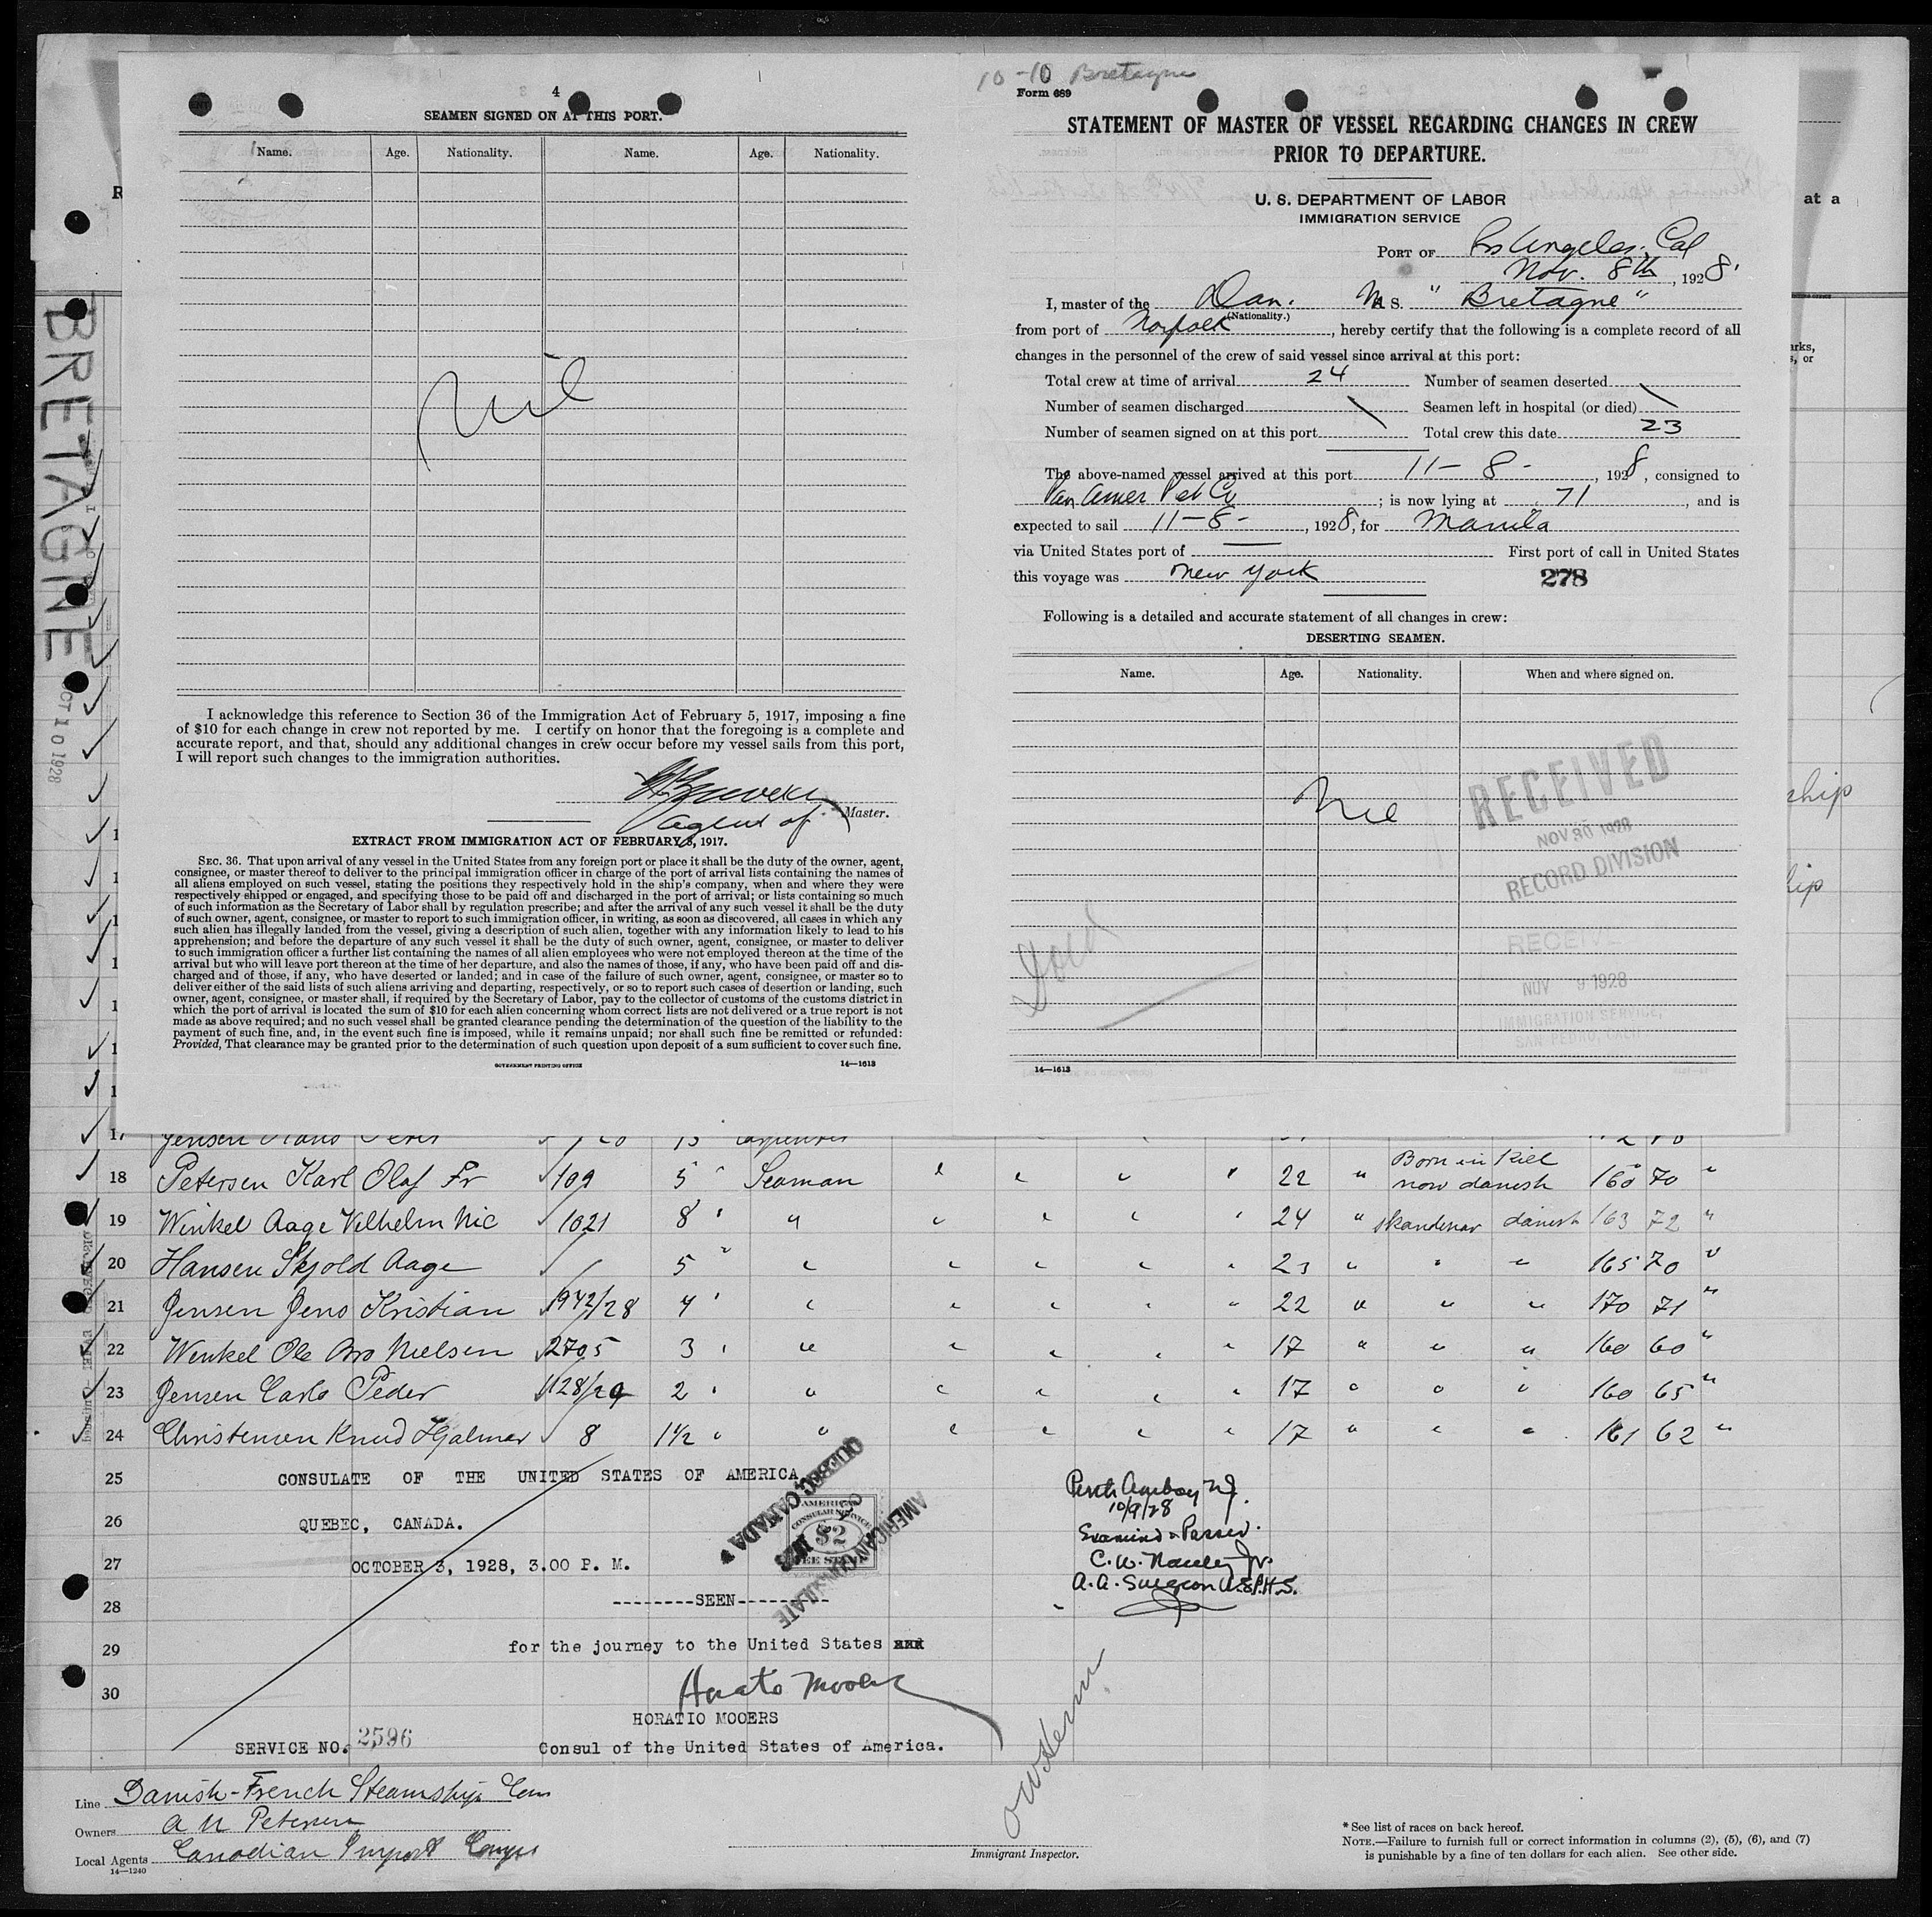 4
SEAMEN SIGNED ON AT THIS PORT.
Name. Age. Nationality. Name. Age. Nationality.
Nil
I acknowledge this reference to Section 36 of the Immigration Act of February 5, 1917, imposing a fine
of $10 for each change in crew not reported by me. I certify on honor that the foregoing is a complete and
accurate report, and that, should any additional changes in crew occur before my vessel sails from this port,
I will report such changes to the immigration authorities.
Master.
agent of
EXTRACT FROM IMMIGRATION ACT OF FEBRUARY 5, 1917.
SEC. 36. That upon arrival of any vessel in the United States from any foreign port or place it shall be the duty of the owner, agent,
consignee, or master thereof to deliver to the principal immigration officer in charge of the port of arrival lists containing the names of
all aliens employed on such vessel, stating the positions they respectively hold in the ship's company, when and where they were
respectively shipped or engaged, and specifying those to be paid off and discharged in the port of arrival; or lists containing so much
of such information as the Secretary of Labor shall by regulation prescribe; and after the arrival of any such vessel it shall be the duty
of such owner, agent, consignee, or master to report to such immigration officer, in writing, as soon as discovered, all cases in which any
such alien has illegally landed from the vessel, giving a description of such alien, together with any information likely to lead to his
apprehension; and before the departure of any such vessel it shall be the duty of such owner, agent, consignee, or master to deliver
to such immigration officer a further list containing the names of all alien employees who were not employed thereon at the time of the
arrival but who will leave port thereon at the time of her departure, and also the names of those, if any, who have been paid off and dis-
charged and of those, if any, who have deserted or landed; and in case of the failure of such owner, agent, consignee, or master so to
deliver either of the said lists of such aliens arriving and departing, respectively, or so to report such cases of desertion or landing, such
owner, agent, consignee, or master shall, if required by the Secretary of Labor, pay to the collector of customs of the customs district in
which the port of arrival is located the sum of $10 for each alien concerning whom correct lists are not delivered or a true report is not
made as above required; and no such vessel shall be granted clearance pending the determination of the question of the liability to the
payment of such fine, and, in the event such fine is imposed, while it remains unpaid; nor shall such fine be remitted or refunded:
Provided, That clearance may be granted prior to the determination of such question upon deposit of a sum sufficient to cover such fine.
GOVERNMENT PRINTING OFFICE 14—1613
10-10 Bretagne
Form 689
STATEMENT OF MASTER OF VESSEL REGARDING CHANGES IN CREW
PRIOR TO DEPARTURE.
U. S. DEPARTMENT OF LABOR
IMMIGRATION SERVICE
PORT OF Los Angeles, Cal
Nov. 8th, 1928.
I, master of the Dan. M S. "Bretagne"
(Nationality.)
from port of Norfolk, hereby certify that the following is a complete record of all
changes in the personnel of the crew of said vessel since arrival at this port:
Total crew at time of arrival 24 Number of seamen deserted \
Number of seamen discharged \ Seamen left in hospital (or died) \
Number of seamen signed on at this port Total crew this date 23
The above-named vessel arrived at this port 11-8-, 1928, consigned to
Pan Amer Pet Co; is now lying at 71, and is
expected to sail 11-8-, 1928, for Manila
via United States port of — First port of call in United States
this voyage was New York 278
Following is a detailed and accurate statement of all changes in crew:
DESERTING SEAMEN.
Name. Age. Nationality. When and where signed on.
Nil
RECEIVED
NOV 30 1928
RECORD DIVISION
RECEIVE
NOV 9 1928
IMMIGRATION SERVICE,
SAN PEDRO, CALIF.
14—1613
at a
BRETAGNE
OCT 10 1928
ship
17 Jensen Hans Peter Carpenter
18 Petersen Karl Olaf Fr 109 5 " Seaman " " " " 22 " Born in Kiel now danish 160 70 "
19 Winkel Aage Vilhelm Nic 1021 8 " " " " " " 24 " Skandinav danish 163 72 "
20 Hansen Skjold Aage / 5 " " " " " " 23 " " " 165 70 "
21 Jensen Jens Kristian 1942/28 4 " " " " " " 22 " " " 170 71 "
22 Winkel Ole Bro Nielsen 2705 3 " " " " " " 17 " " " 160 60 "
23 Jensen Carlo Peder 128/29 2 " " " " " " 17 " " " 160 65 "
24 Christensen Knud Hjalmar 8 1½ " " " " " " 17 " " " 161 62 "
25 CONSULATE OF THE UNITED STATES OF AMERICA
26 QUEBEC, CANADA.
27 OCTOBER 3, 1928, 3.00 P. M.
28 --------SEEN---------
29 for the journey to the United States
30
HORATIO MOOERS
SERVICE NO. 2596 Consul of the United States of America.
AMERICAN CONSULATE
QUEBEC, CANADA
AMERICAN
CONSULAR SERVICE
$2
FEE STAMP
Perth Amboy N.J.
10/9/28
Examined & Passed.
A.A. Surgeon U.S.P.H.S.
Line Danish-French Steamship Com
Owners A N Petersen
Local Agents Canadian Import Compy
14—1240
Immigrant Inspector.
* See list of races on back hereof.
NOTE.—Failure to furnish full or correct information in columns (2), (5), (6), and (7)
is punishable by a fine of ten dollars for each alien. See other side.